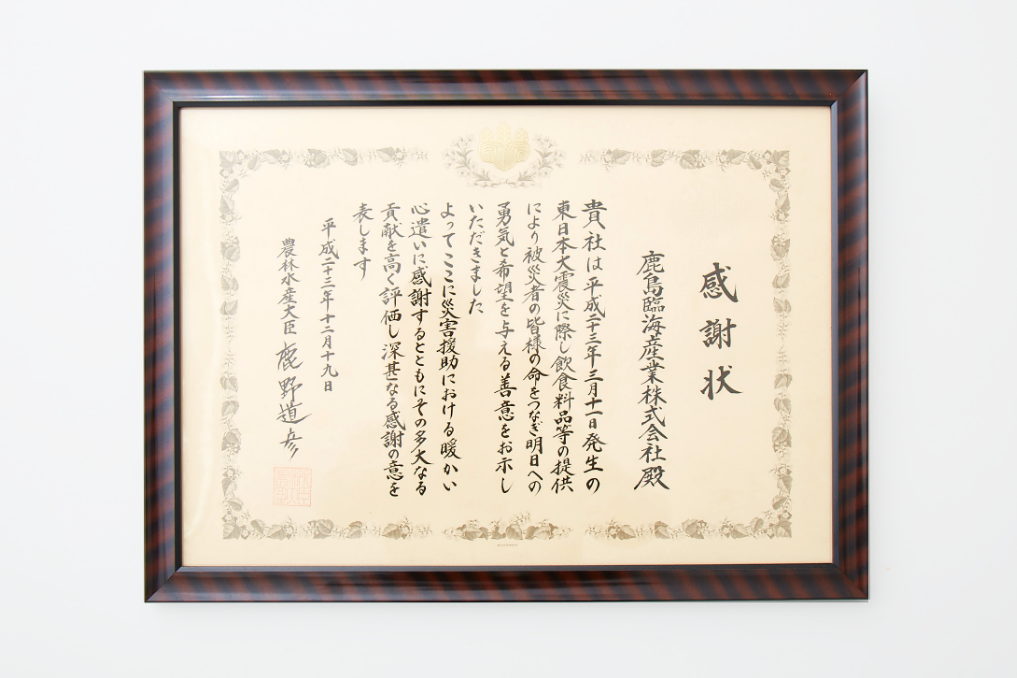 感謝状
鹿島臨海産業株式会社殿
貴社は平成二十三年三月十一日発生の
東日本大震災に際し飲食料品等の提供
により被災者の皆様の命をつなぎ明日への
勇気と希望を与える善意をお示し
いただきました
よってここに災害援助における暖かい
心遣いに感謝するとともにその多大なる
貢献を高く評価し深甚なる感謝の意を
表します
平成二十三年十二月十九日
農林水産大臣 鹿野道彦